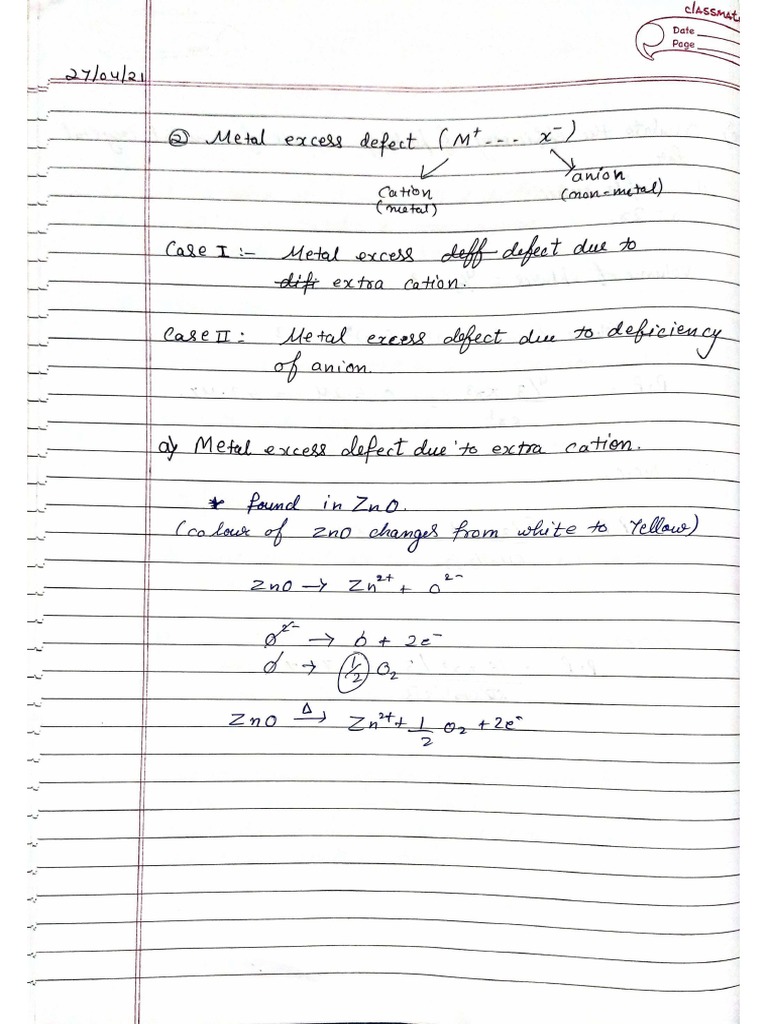 classmate
Date
Page
27/04/21
② Metal excess defect (M⁺ --- x⁻)
Cation (metal)
anion (non-metal)
Case I :- Metal excess deff defect due to
difi extra cation.
Case II : Metal excess defect due to deficiency
of anion.
a) Metal excess defect due to extra cation.
* found in ZnO.
(colour of ZnO changes from white to Yellow)
ZnO → Zn²⁺ + O²⁻
O²⁻ → O + 2e⁻
O → 1/2 O₂
ZnO —Δ→ Zn²⁺ + 1/2 O₂ + 2e⁻